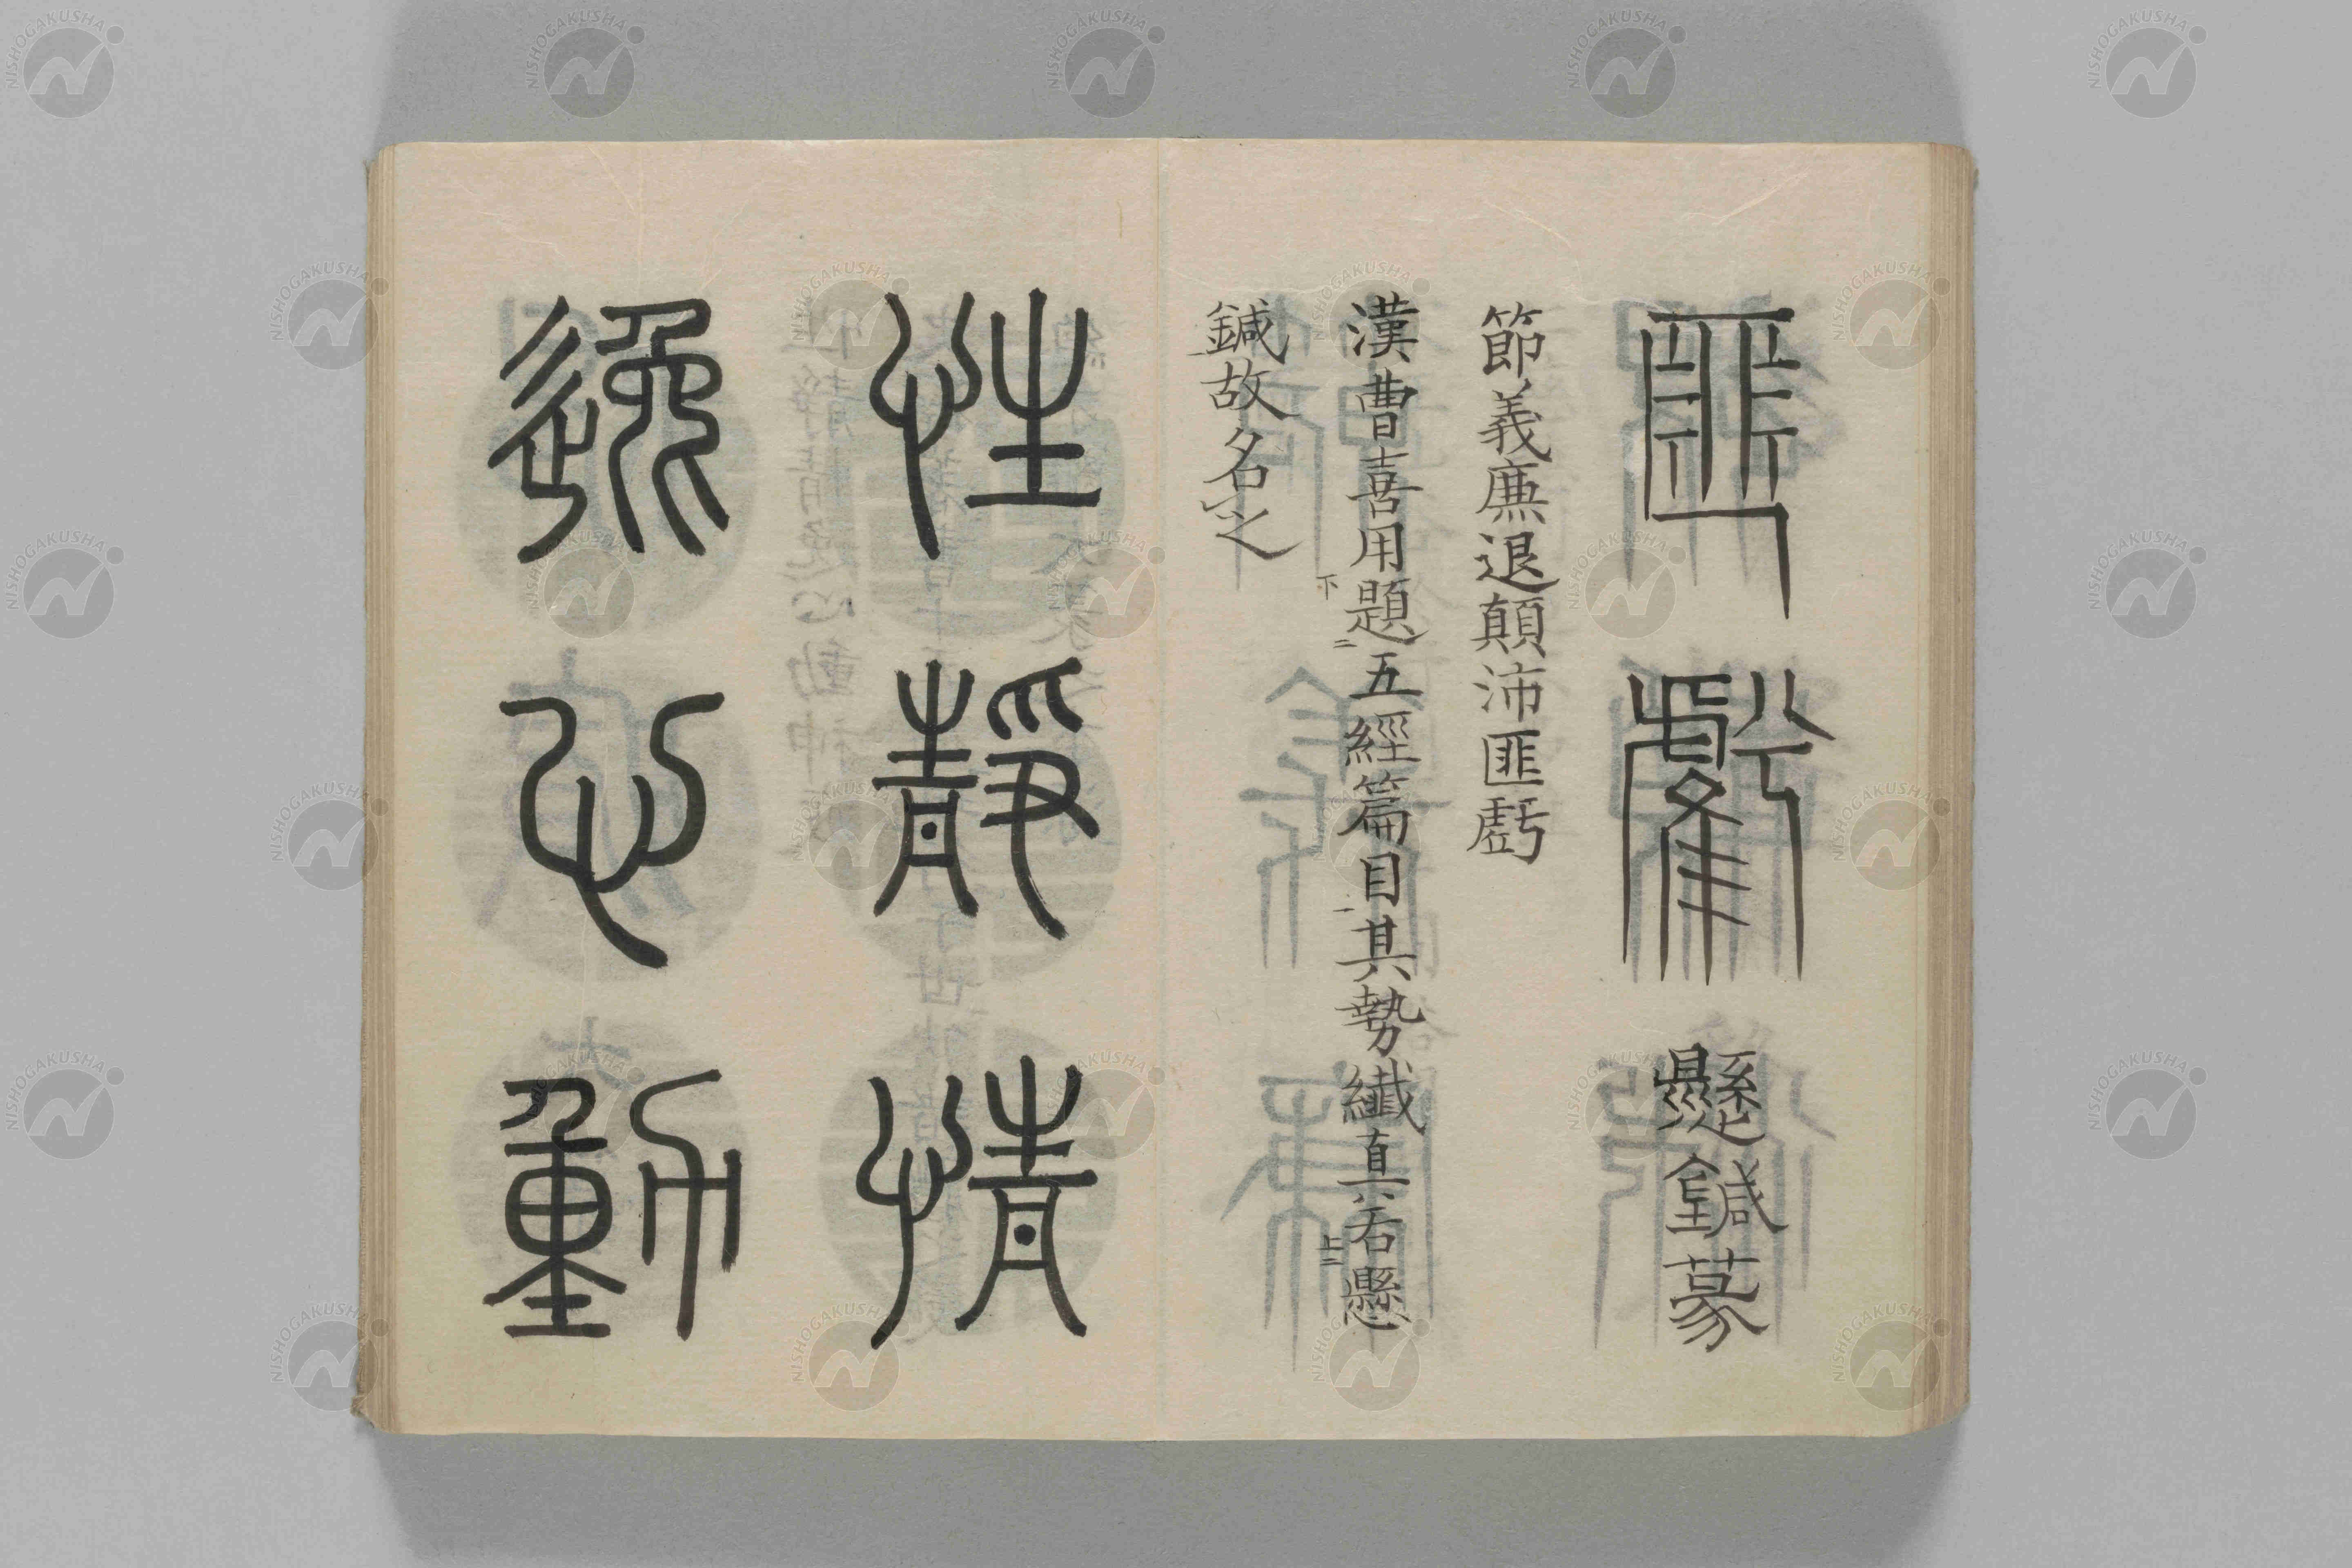 匪虧 懸鍼篆
節義廉退顛沛匪虧
漢曹喜用題五經篇目其勢纎真若懸
下 二 一 上二
鍼故名之
性靜情
逸心動
NISHOGAKUSHA